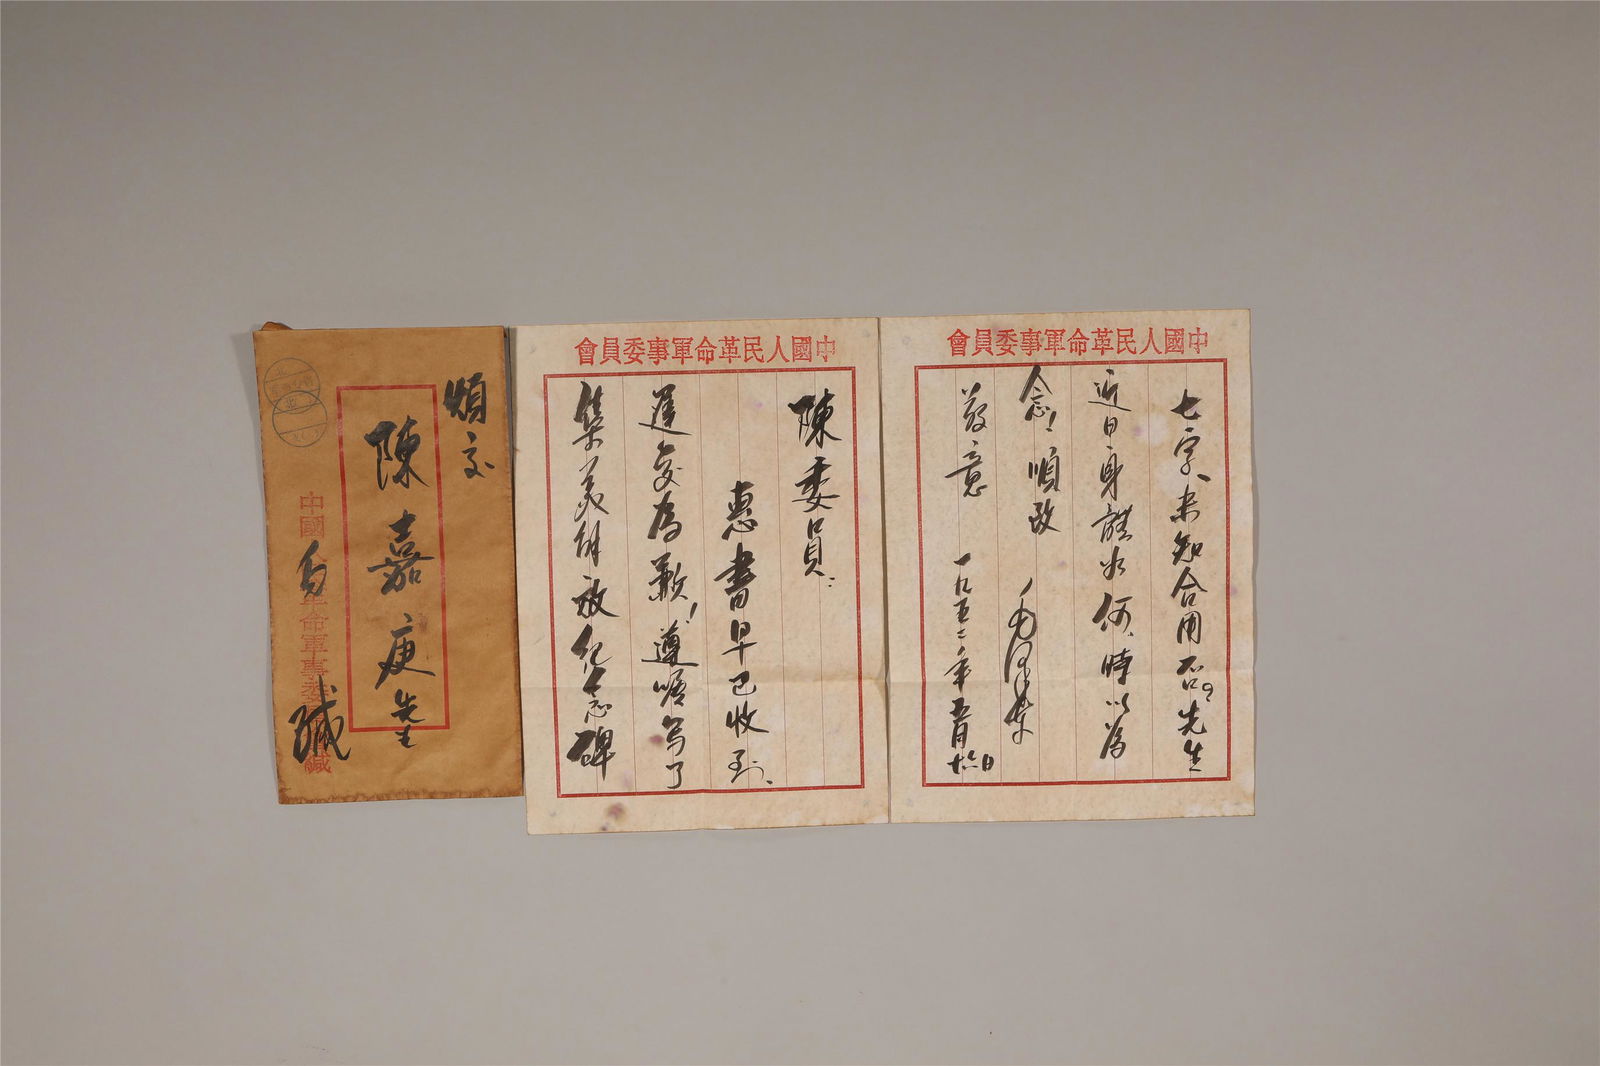 煩交
陳嘉庚先生
毛 緘
中國人民革命軍事委員會
陳委員：
惠書早已收到、
遲复為歉！遵嘱写了
集美解放紀念碑
中國人民革命軍事委員會
七字、未知合用否？先生
近日身體如何、時以為
念！順致
敬意
毛澤東
一九五二年五月十六日